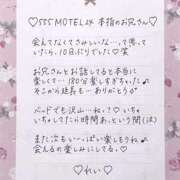 ♡555 MOTEL24 本指のお兄さん♡
会えてなくてさみしいな…って思って
いたら、10日ぶりでした♡笑
お兄さんとお話してると本当に
楽しくて…180分楽しすぎちゃった♪
そこから延長も…ありがとう💕
ベッドでも沢山…ね♡?♡いちゃ
いちゃしてたら時間あっという間(涙)
また次もい〜っぱい楽しもうね♪
会えるの楽しみにしてる。♡
♡れい♡